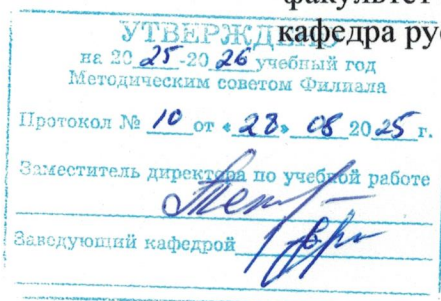 факультет
кафедра ру
УТВЕРЖДЕНО
на 2025-2026 учебный год
Методическим советом Филиала
Протокол № 10 от «28» 08 2025 г.
Заместитель директора по учебной работе
Заведующий кафедрой